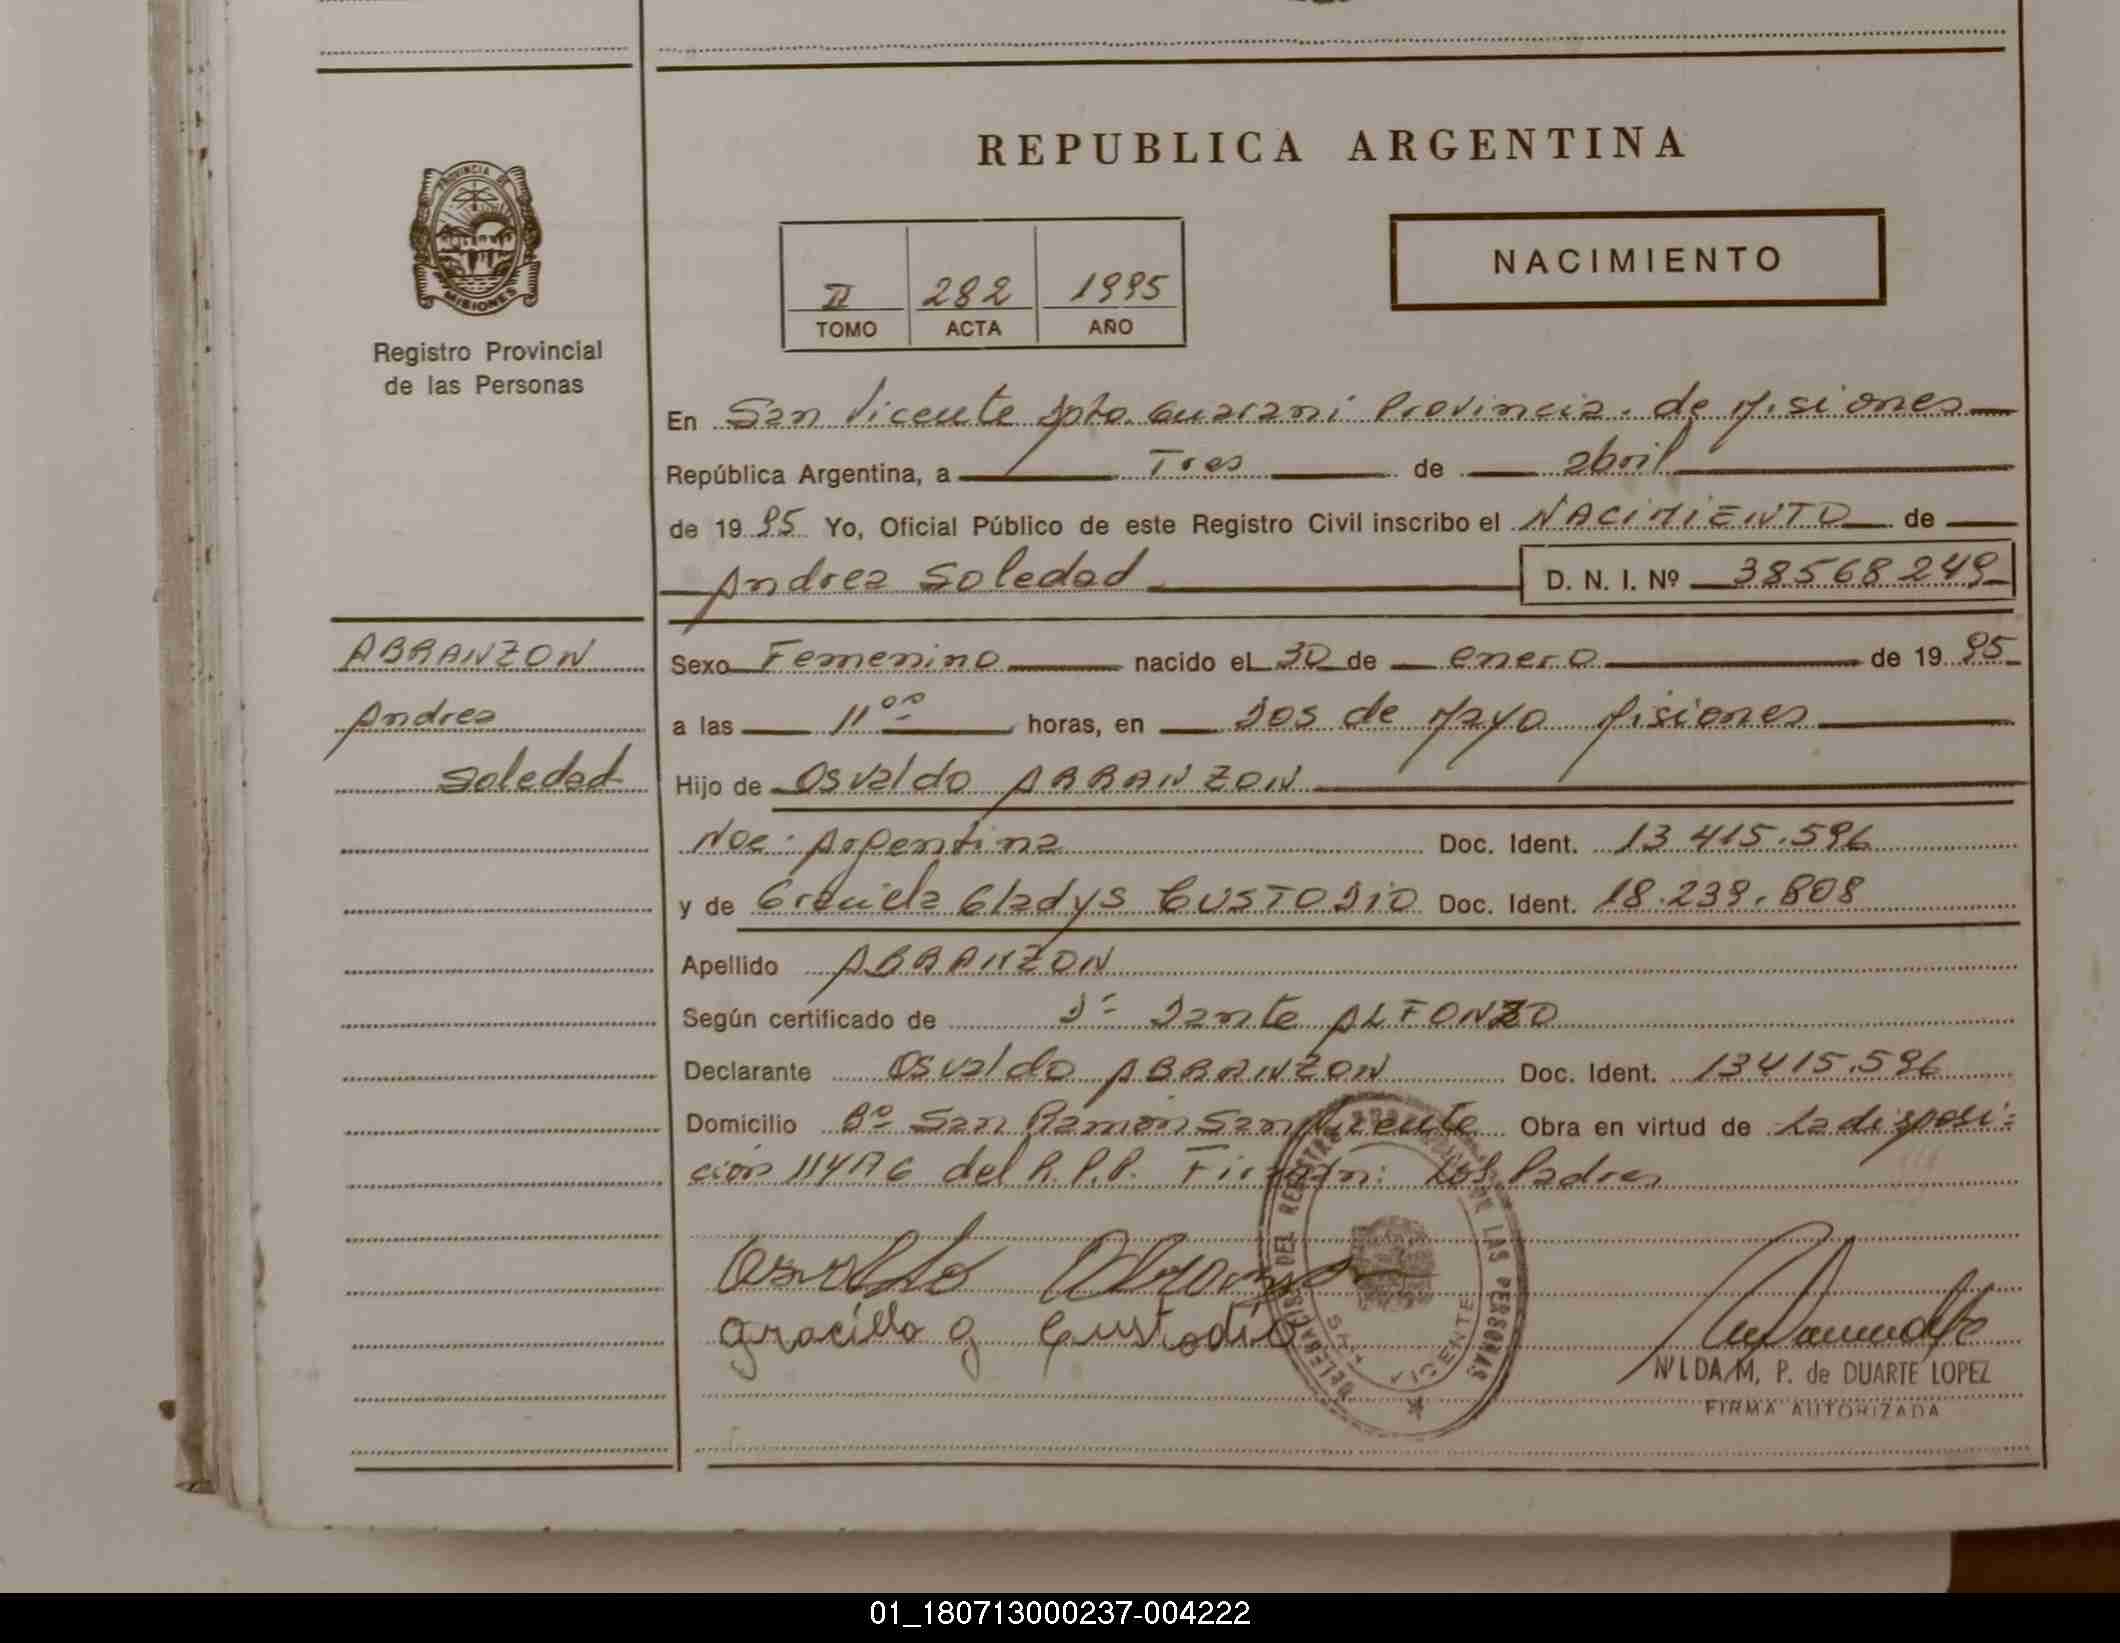 REPUBLICA ARGENTINA
PROVINCIA DE
MISIONES
Registro Provincial
de las Personas
NACIMIENTO
II 282 1995
TOMO ACTA AÑO
En San Vicente Dpto. Guarani Provincia de Misiones
República Argentina, a Tres de abril
de 1995 Yo, Oficial Público de este Registro Civil inscribo el NACIMIENTO de
Andrea Soledad D. N. I. Nº 38568249
ABRANZON
Andrea
Soledad
Sexo Femenino nacido el 30 de enero de 1995
a las 11 ºº horas, en Dos de Mayo Misiones
Hijo de Osvaldo ABRANZON
Nac. Argentina Doc. Ident. 13 415.596
y de Graciela Gladys CUSTODIO Doc. Ident. 18.239.808
Apellido ABRANZON
Según certificado de Dr Dante ALFONZO
Declarante Osvaldo ABRANZON Doc. Ident. 13415.596
Domicilio Bº San Ramón San Vicente Obra en virtud de La disposi-
ción 114/76 del R.P.P. Firman: Los Padres
graciela g Custodio
DELEGACION DEL REGISTRO PROVINCIAL DE LAS PERSONAS
SAN VICENTE
NILDA M. P. de DUARTE LOPEZ
FIRMA AUTORIZADA
01_180713000237-004222